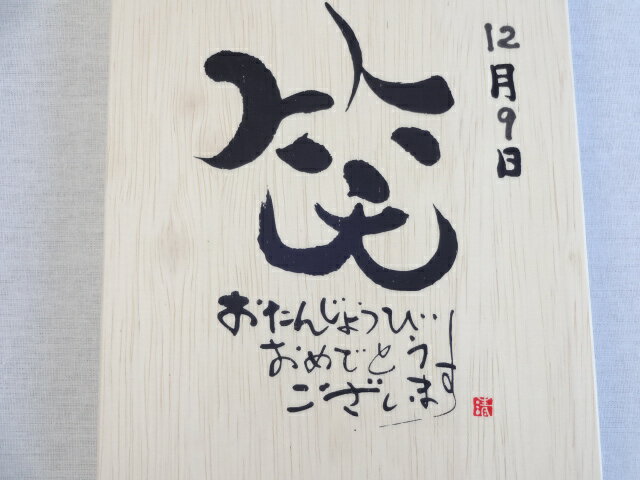 12月9日
笑
おたんじょうび
おめでとう
ございます